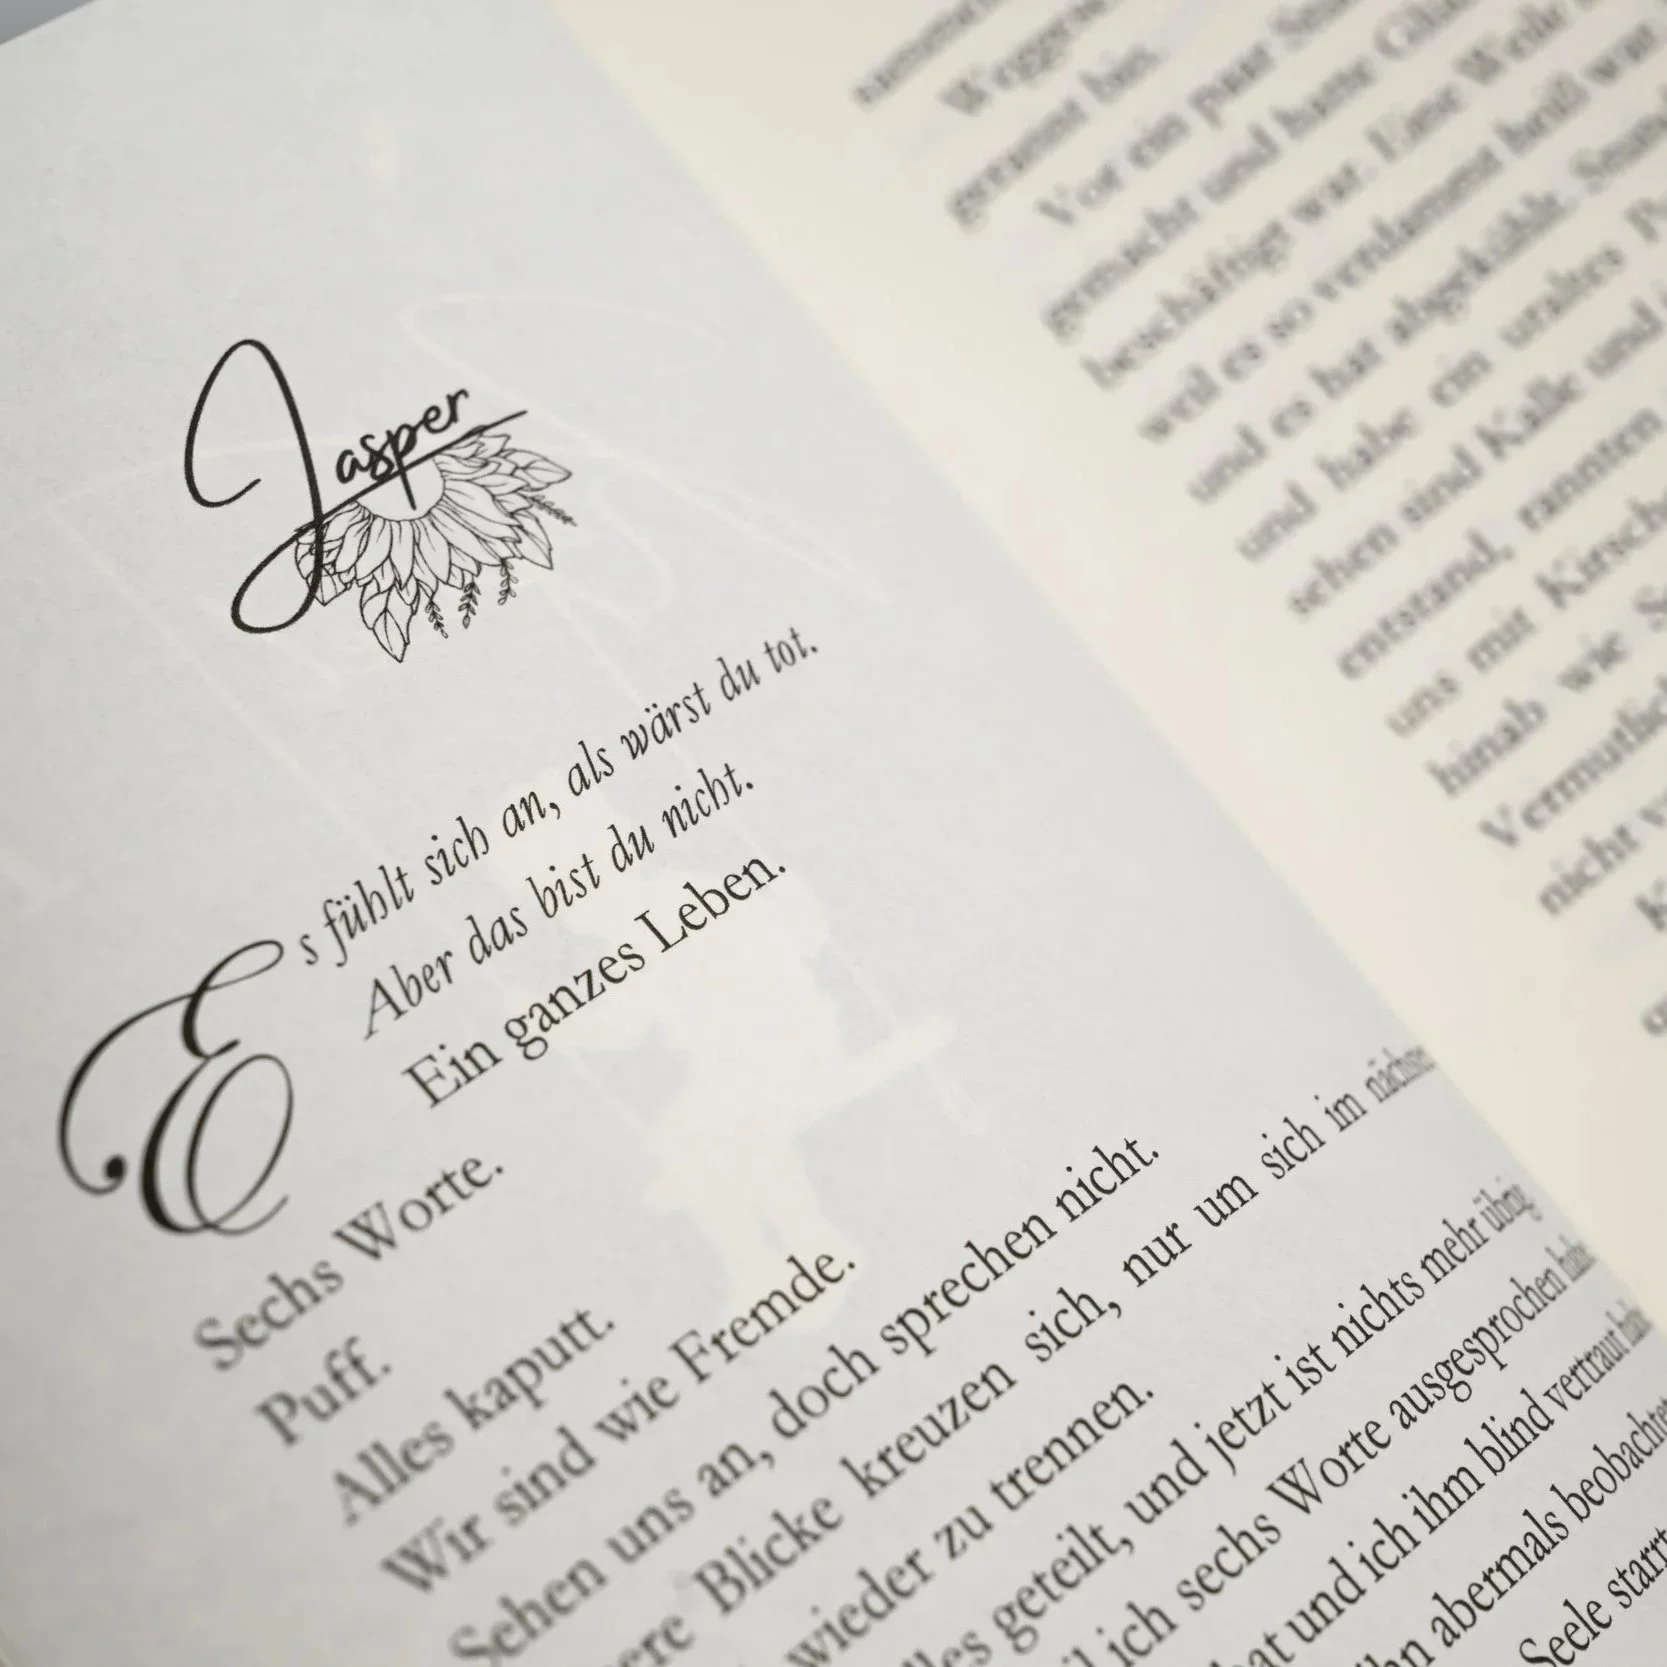 Jasper
Es fühlt sich an, als wärst du tot.
Aber das bist du nicht.
Ein ganzes Leben.
Sechs Worte.
Puff.
Alles kaputt.
Wir sind wie Fremde.
Sehen uns an, doch sprechen nicht.
ere Blicke kreuzen sich, nur um sich im nächsten
wieder zu trennen.
lles geteilt, und jetzt ist nichts mehr übrig
il ich sechs Worte ausgesprochen habe
at und ich ihm blind vertraut
hn abermals beobachte
Seele starrt
gerannt bin.
Vor ein paar
gemacht und hatte
beschäftigt war. Eine Weile
weil es so verdammt heiß war
und es hat abgekühlt.
und habe ein uraltes
sehen sind Kalle und
entstand, rannten
uns mit Kirsch
hinab wie
Vermutlich
nicht